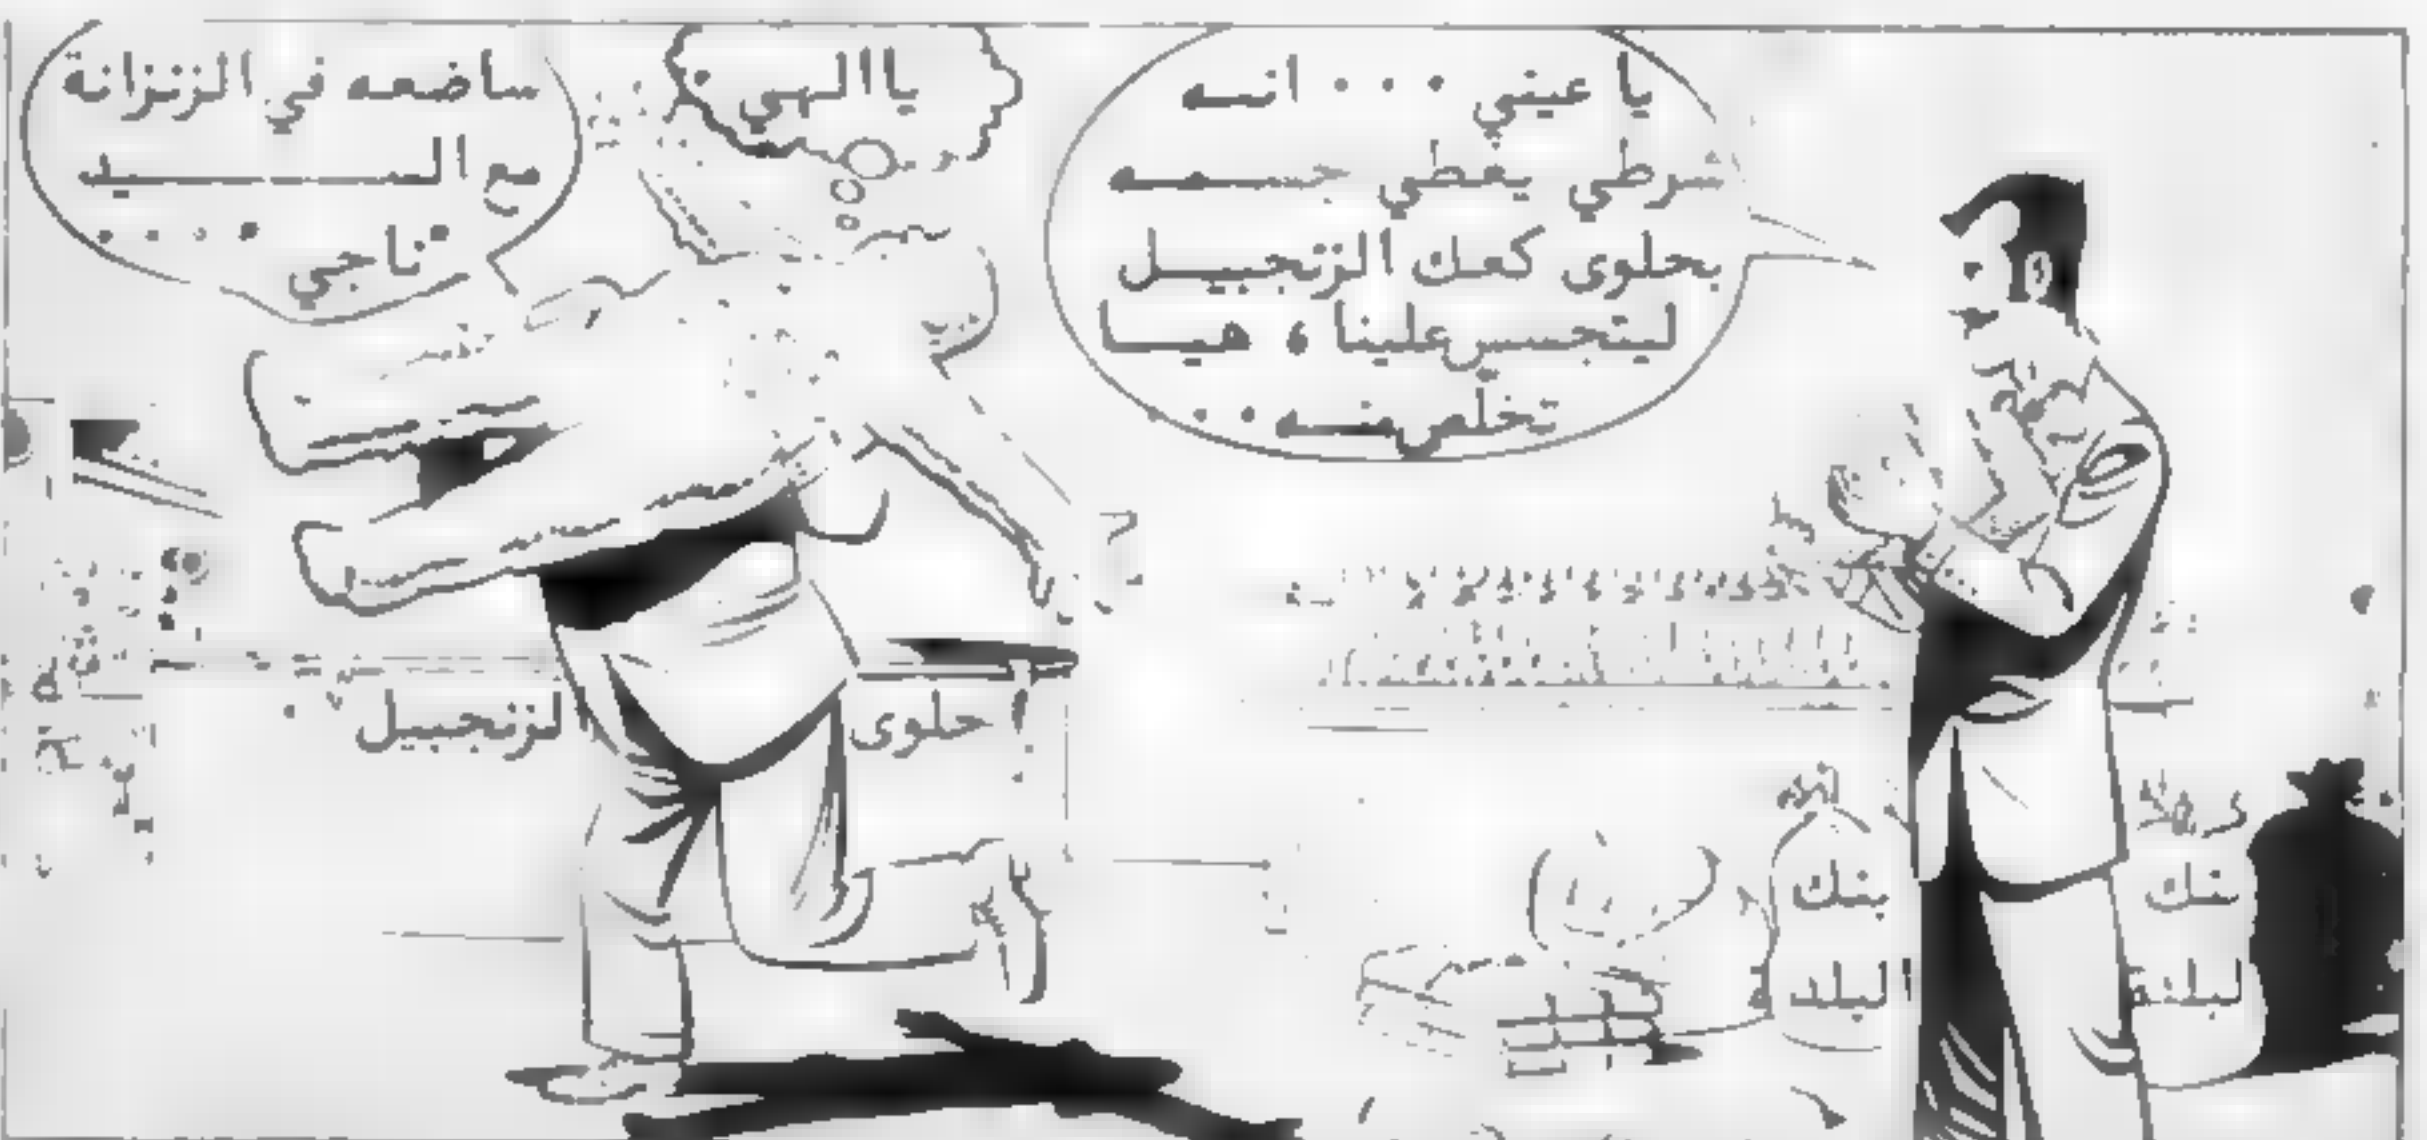 يا عيني ... انه
شرطي يغطي جسمه
بحلوى كعك الزنجبيل
ليتجسس علينا ، هيا
تخلص منه ..
ياالهي .
ساضعه في الزنزانة
مع السيد
ناجي ....
حلوى
لزنجبيل
بنك
البلدة
بنك
لبلدة